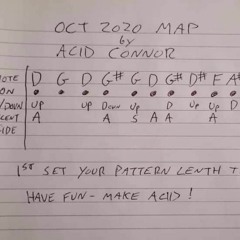 OCT 2020 MAP
by
ACID CONNOR
NOTE D G D G# G D G# D# F A#
ON
/DOWN UP UP DOWN UP D UP UP D
CENT A A S A A A
IDE
1ST SET YOUR PATTERN LENTH T
HAVE FUN - MAKE ACID!